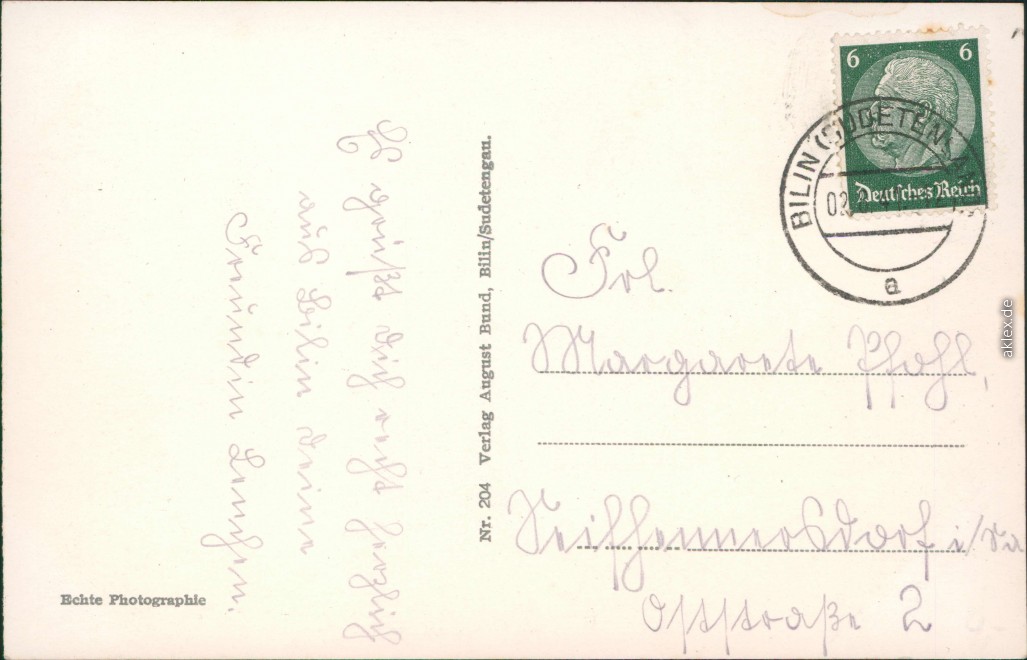 Es grüßt dich recht herzlich
aus Bilin deine
Freundin Lenchen.
Echte Photographie
Nr. 204 Verlag August Bund, Bilin/Sudetengau.
6 6
Deutsches Reich
BILIN (SUDETEN
a
Frl.
Margarete Pfohl,
Seifhennersdorf i/Sa
Oststraße 2
aklex.de